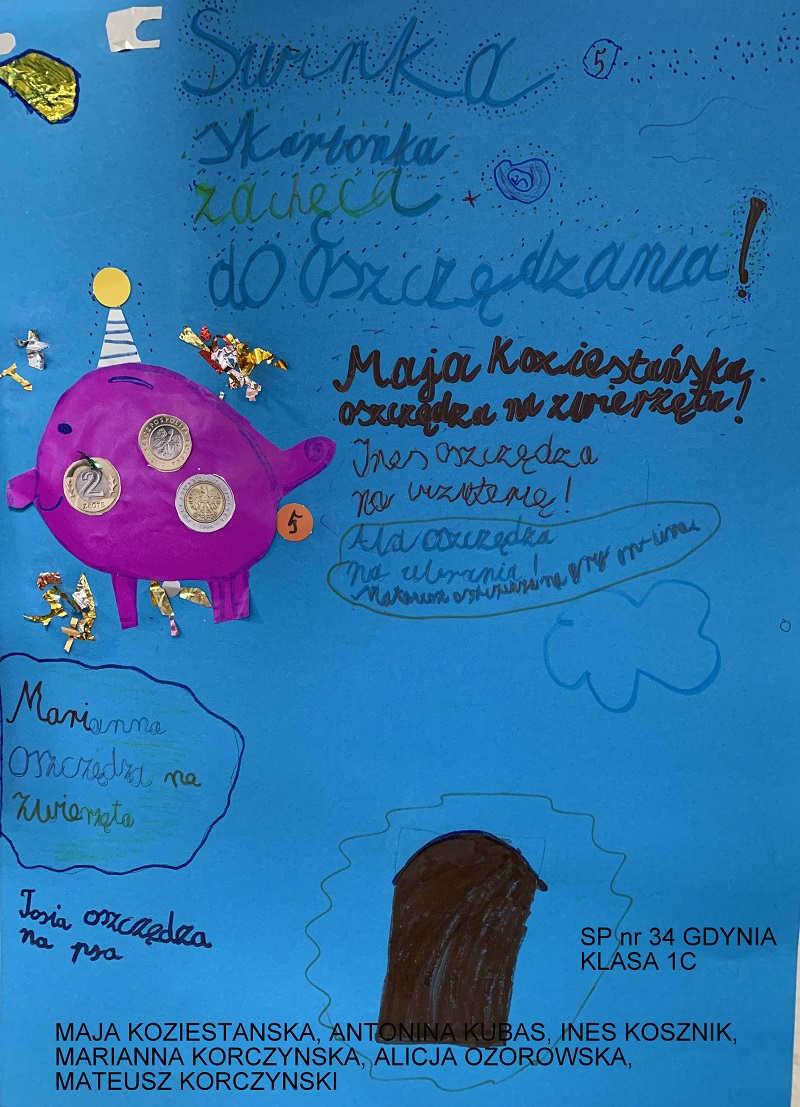 Swinka
skarbonka
zachęca
do oszczędzania!
5
5
Maja Koziestańska
oszcządza na zwierzęta!
Ines oszczędza
na
Ala oszczędza
na ubrania!
Mateusz na gry on-line
2
ZŁOTE
5
Marianna
oszczędza na
zwierzęta
Tosia oszczędza
na psa
SP nr 34 GDYNIA
KLASA 1C
MAJA KOZIESTANSKA, ANTONINA KUBAS, INES KOSZNIK,
MARIANNA KORCZYNSKA, ALICJA OZOROWSKA,
MATEUSZ KORCZYNSKI